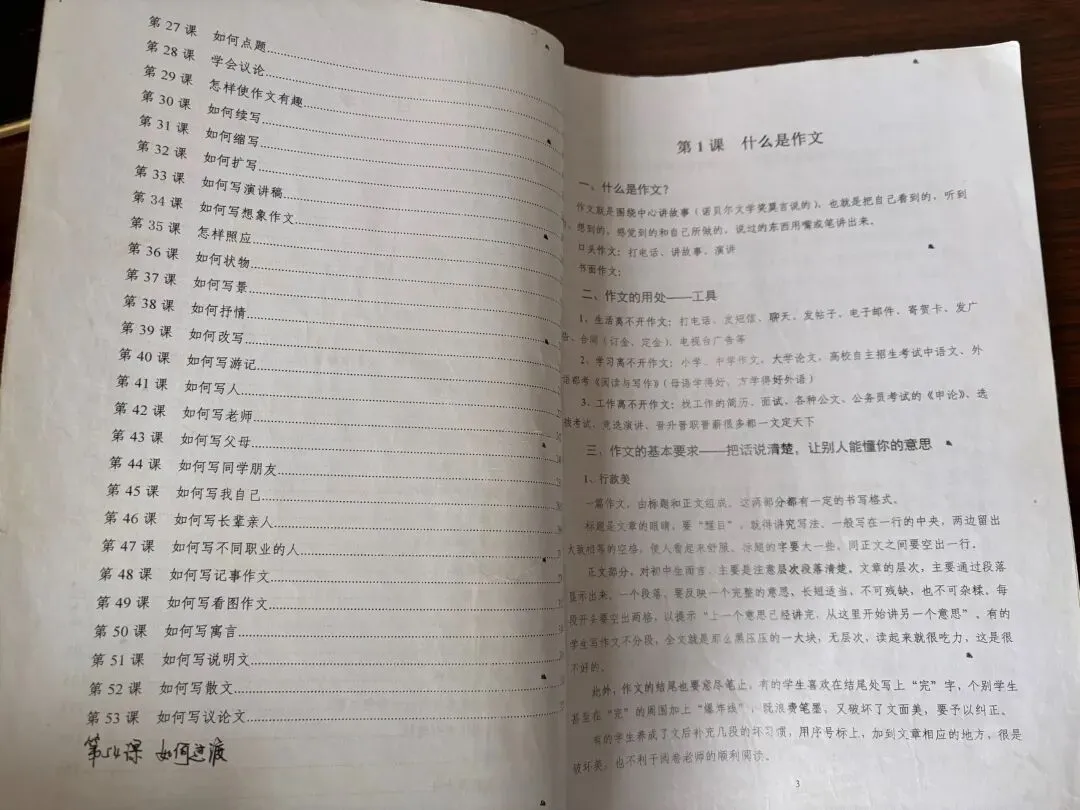 第 27 课 如何点题
第 28 课 学会议论
第 29 课 怎样使作文有趣
第 30 课 如何续写
第 31 课 如何缩写
第 32 课 如何扩写
第 33 课 如何写演讲稿
第 34 课 如何写想象作文
第 35 课 怎样照应
第 36 课 如何状物
第 37 课 如何写景
第 38 课 如何抒情
第 39 课 如何改写
第 40 课 如何写游记
第 41 课 如何写人
第 42 课 如何写老师
第 43 课 如何写父母
第 44 课 如何写同学朋友
第 45 课 如何写我自己
第 46 课 如何写长辈亲人
第 47 课 如何写不同职业的人
第 48 课 如何写记事作文
第 49 课 如何写看图作文
第 50 课 如何写寓言
第 51 课 如何写说明文
第 52 课 如何写散文
第 53 课 如何写议论文
第54课 如何过渡
第 1 课 什么是作文
一、什么是作文?
作文就是围绕中心讲故事(诺贝尔文学奖莫言说的),也就是把自己看到的,听到
想到的,感觉到的和自己所做的,说过的东西用嘴或笔讲出来。
口头作文:打电话、讲故事、演讲
书面作文:
二、作文的用处——工具
1、生活离不开作文:打电话、发短信、聊天、发帖子、电子邮件、寄贺卡、发广
告、合同(订金、定金)、电视台广告等
2、学习离不开作文:小学、中学作文,大学论文,高校自主招生考试中语文、外
语都考《阅读与写作》(母语学得好,方学得好外语)
3、工作离不开作文:找工作的简历、面试、各种公文、公务员考试的《申论》、选
拔考试、竞选演讲、晋升晋职晋薪很多都一文定天下
三、作文的基本要求——把话说清楚,让别人能懂你的意思
1、行款美
一篇作文,由标题和正文组成,这两部分都有一定的书写格式。
标题是文章的眼睛,要“醒目”,就得讲究写法、一般写在一行的中央,两边留出
大致相等的空格,使人看起来舒服、标题的字要大一些,同正文之间要空出一行。
正文部分,对初中生而言,主要是注意层次段落清楚。文章的层次,主要通过段落
显示出来。一个段落,要反映一个完整的意思,长短适当,不可残缺,也不可杂糅。每
段开头要空出两格,以提示“上一个意思已经讲完,从这里开始讲另一个意思”。有的
学生写作文不分段,全文就是那么黑压压的一大块,无层次,读起来就很吃力,这是很
不好的。
此外,作文的结尾也要意尽笔止,有的学生喜欢在结尾处写上“完”字,个别学生
甚至在“完”的周围加上“爆炸线”,既浪费笔墨,又破坏了文面美,要予以纠正。
有的学生养成了文后补充几段的坏习惯,用序号标上,加到文章相应的地方,很是
破坏美,也不利于阅卷老师的顺利阅读。
3